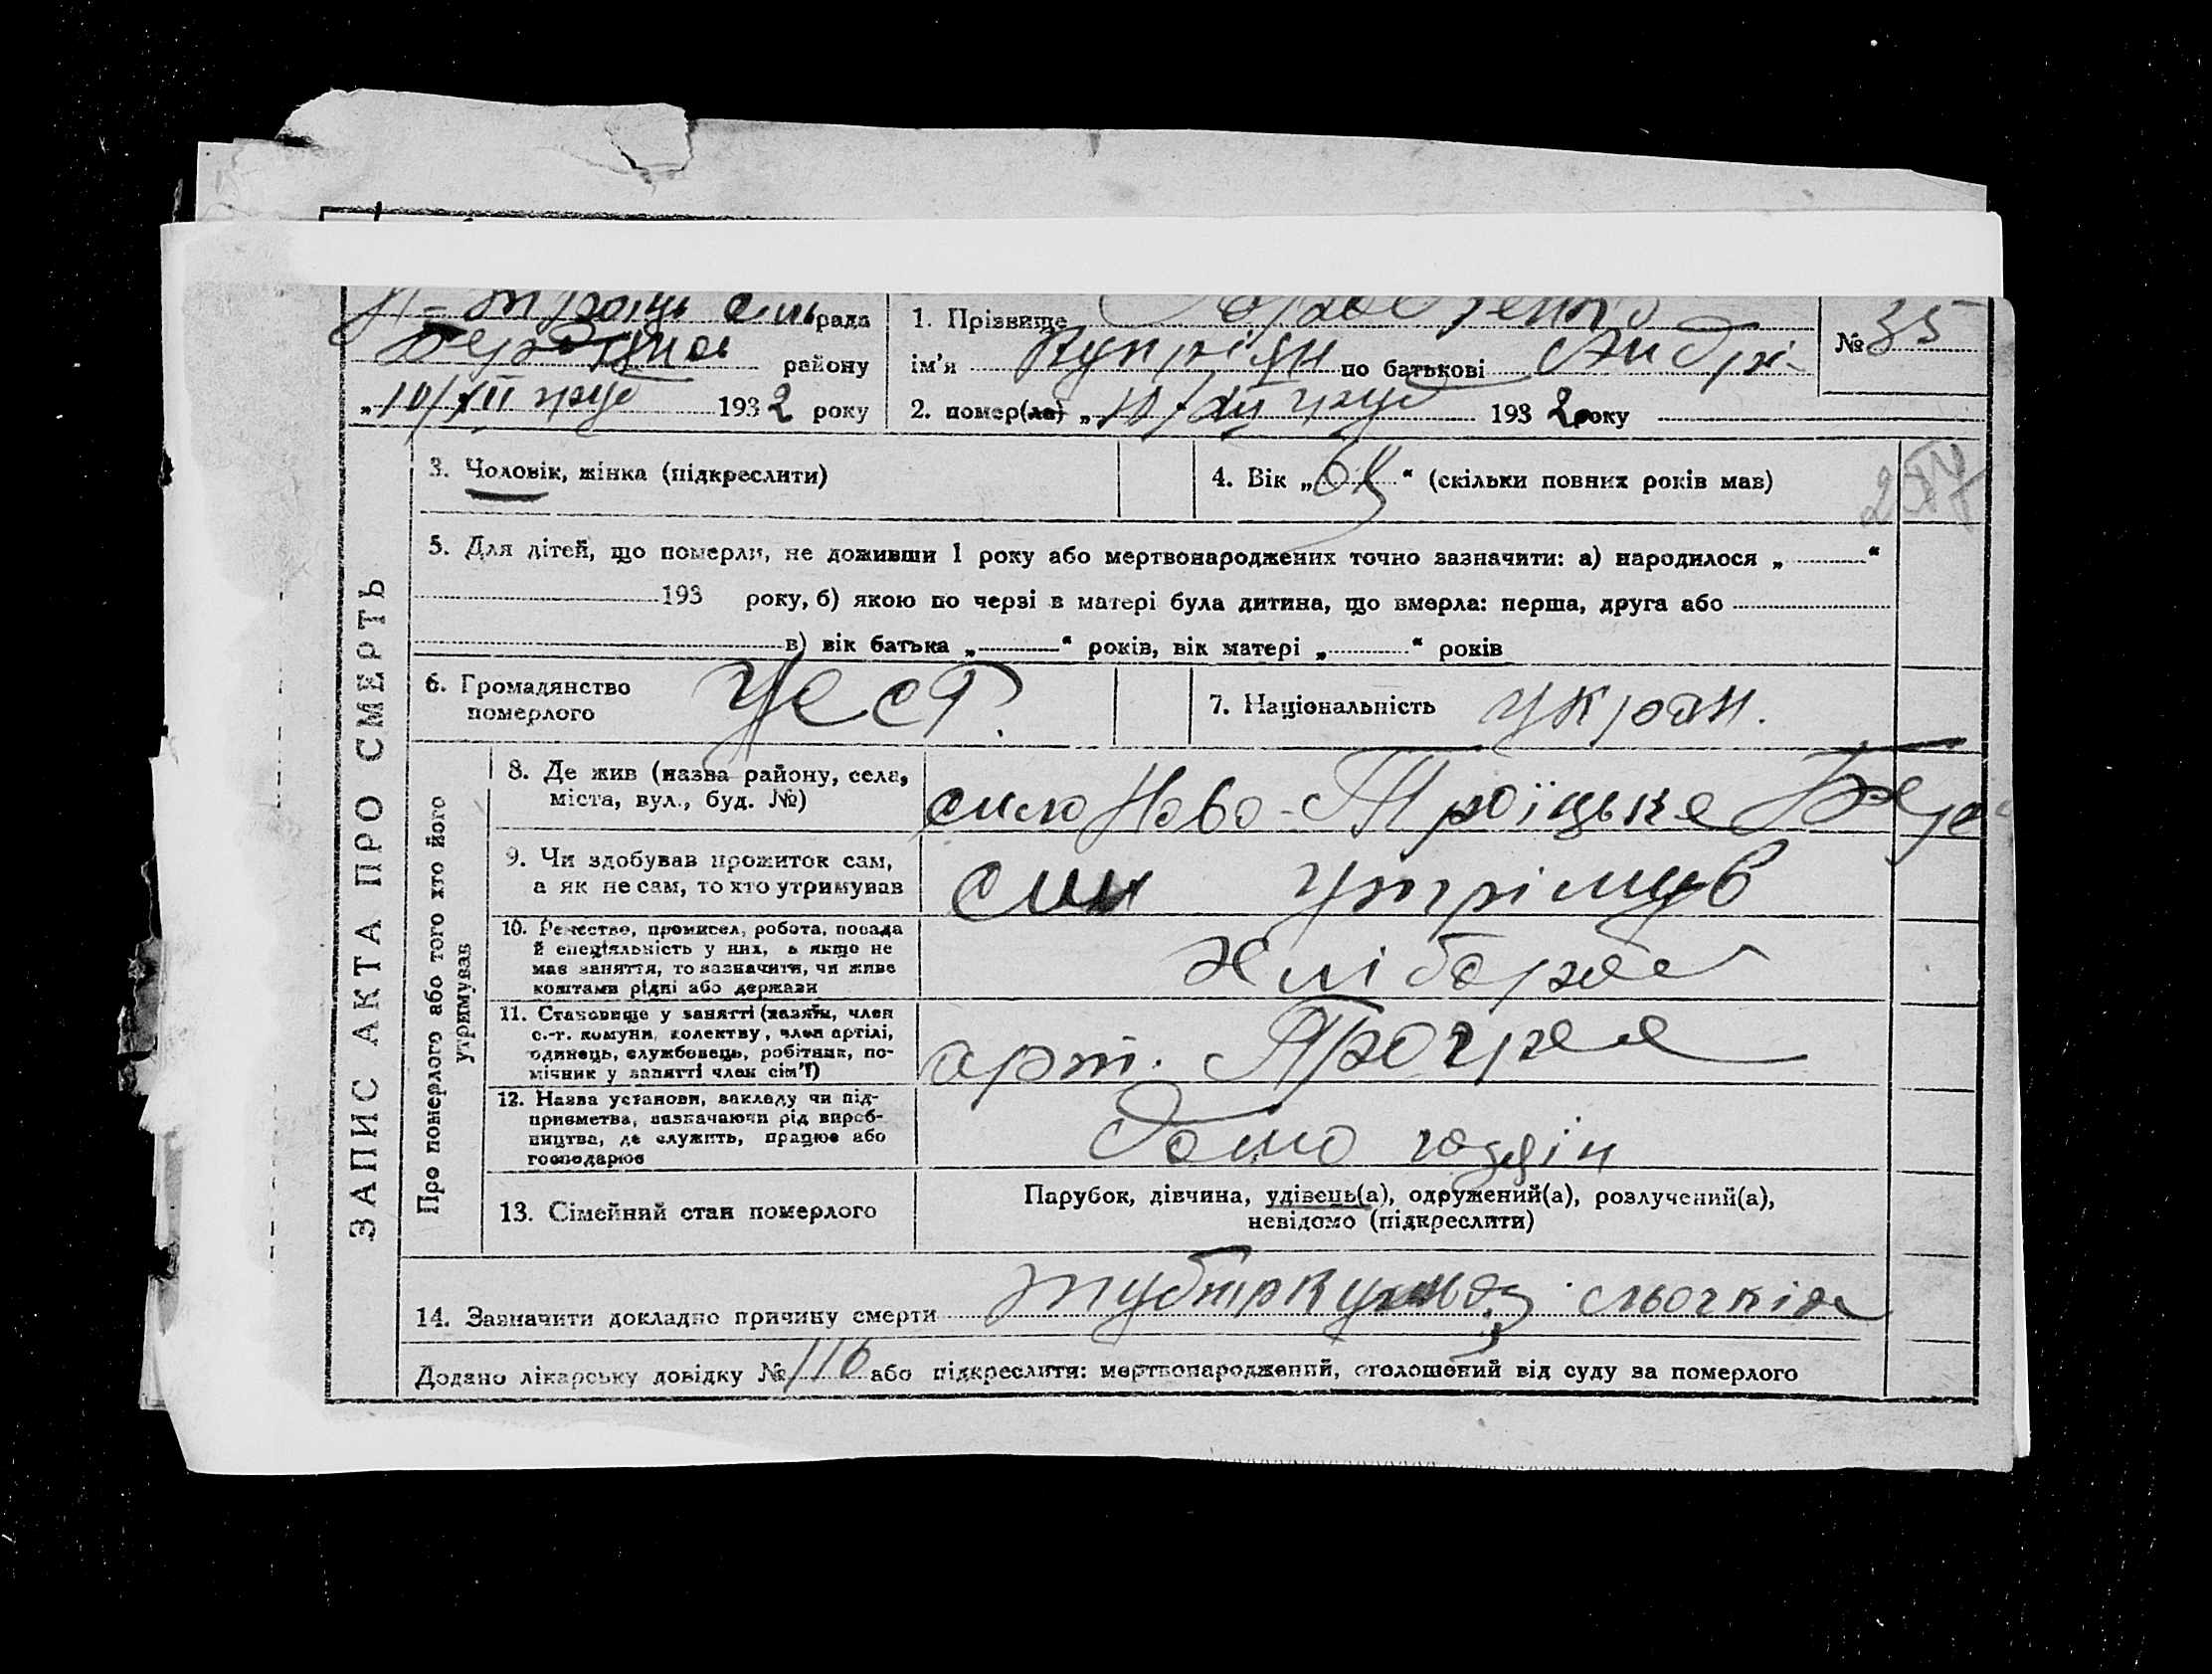 Н-Троїць сільрада
району
„10/XII груд 1932 року
1. Прізвище
ім'я Купріян по батькові Андрі-
2. помер(ла) „10/XII груд 1932 року
№ 35
3. Чоловік, жінка (підкреслити)
4. Вік „ “ (скільки повних років мав)
5. Для дітей, що померли, не доживши 1 року або мертвонароджених точно зазначити: а) народилося „ “
193 року, б) якою по черзі в матері була дитина, що вмерла: перша, друга або
в) вік батька „ “ років, вік матері „ “ років
6. Громадянство
померлого
7. Національність украін.
ЗАПИС АКТА ПРО СМЕРТЬ
Про померлого або того хто його
утримував
8. Де жив (назва району, села,
міста, вул., буд. №)
село Ново-Троїцьке
9. Чи здобував прожиток сам,
а як не сам, то хто утримував
син утрімув
10. Ремество, промисел, робота, посада
й спеціяльність у них, а якщо не
має заняття, то зазначити, чи живе
коштами рідні або держави
хлібороб
11. Становище у занятті (хазяїн, член
с.-г. комуни, колективу, член артілі,
одинець, службовець, робітник, по-
мічник у занятті член сім'ї)
арт. Прогрес
12. Назва установи, закладу чи під-
приємства, зазначаючи рід вироб-
ництва, де служить, працює або
господарює
13. Сімейний стан померлого
Парубок, дівчина, удівець(а), одружений(а), розлучений(а),
невідомо (підкреслити)
14. Зазначити докладно причину смерти
Додано лікарську довідку № 116 або підкреслити: мертвонароджений, оголошений від суду за померлого